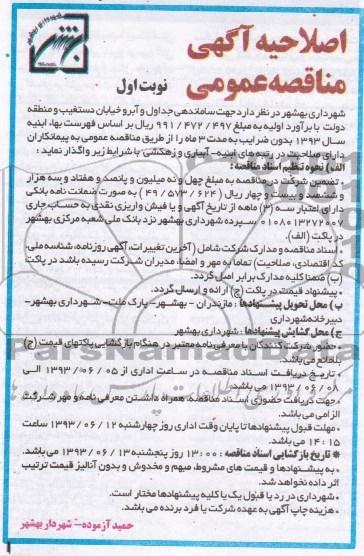 اصلاحیه آگهی
مناقصه عمومی نوبت اول
شهرداری بهشهر در نظر دارد جهت ساماندهی جداول و آبرو خیابان دستغیب و منطقه
دولت با برآورد اولیه به مبلغ ۹۹۱/۴۷۲/۴۹۷ ریال بر اساس فهرست بها، ابنیه
سال ۱۳۹۳ بدون ضرایب به مدت ۳ ماه را از طریق مناقصه عمومی به پیمانکاران
دارای صلاحیت در رتبه های ابنیه - آبیاری و زهکشی با شرایط زیر واگذار نماید:
الف) نحوه تنظیم اسناد مناقصه:
- تضمین شرکت در مناقصه به مبلغ چهل و نه میلیون و پانصد و هفتاد و سه هزار
و ششصد و بیست و چهار ریال (۴۹/۵۷۳/۶۲۴) به صورت ضمانت نامه بانکی
دارای اعتبار سه (۳) ماهه از تاریخ آگهی و یا فیش واریزی نقدی به حساب جاری
۰۱۰۸۰۱۳۲۷۲۰۰۷ سپرده شهرداری بهشهر نزد بانک ملی شعبه مرکزی بهشهر
در پاکت (الف).
- اسناد مناقصه و مدارک شرکت شامل (آخرین تغییرات، آگهی روزنامه، شناسه ملی،
کد اقتصادی، صلاحیت) تماما به مهر و امضاء مدیران شرکت رسیده باشد در پاکت
(ب) ضمنا کلیه مدارک برابر اصل گردد.
- پیشنهاد قیمت در پاکت (ج) ارائه و ارسال گردد.
ب) محل تحویل پیشنهادها: مازندران - بهشهر - پارک ملت - شهرداری بهشهر -
دبیرخانه شهرداری
ج) محل گشایش پیشنهادها: شهرداری بهشهر
- حضور شرکت کنندگان با معرفی نامه معتبر در هنگام بازگشایی پاکتهای قیمت (ج)
بلامانع می باشد.
- تاریخ دریافت اسناد مناقصه در ساعت اداری از ۱۳۹۳/۰۶/۰۵ الی
۱۳۹۳/۰۶/۰۸ می باشد.
- جهت دریافت حضوری اسناد مناقصه، همراه داشتن معرفی نامه و مهر شرکت
الزامی می باشد.
- مهلت قبول پیشنهادها تا پایان وقت اداری روز چهارشنبه ۱۳۹۳/۰۶/۱۲ ساعت
۱۴:۱۵ می باشد.
* تاریخ بازگشایی اسناد مناقصه: ۱۳:۰۰ روز پنجشنبه ۱۳۹۳/۰۶/۱۳ می باشد.
- به پیشنهادها و قیمت های مشروط، مبهم و مخدوش و بدون آنالیز قیمت ترتیب
اثر داده نخواهد شد.
- شهرداری در رد یا قبول یک یا کلیه پیشنهادها مختار است.
- هزینه چاپ آگهی به عهده شرکت یا فرد برنده می باشد.
حمید آزموده - شهردار بهشهر